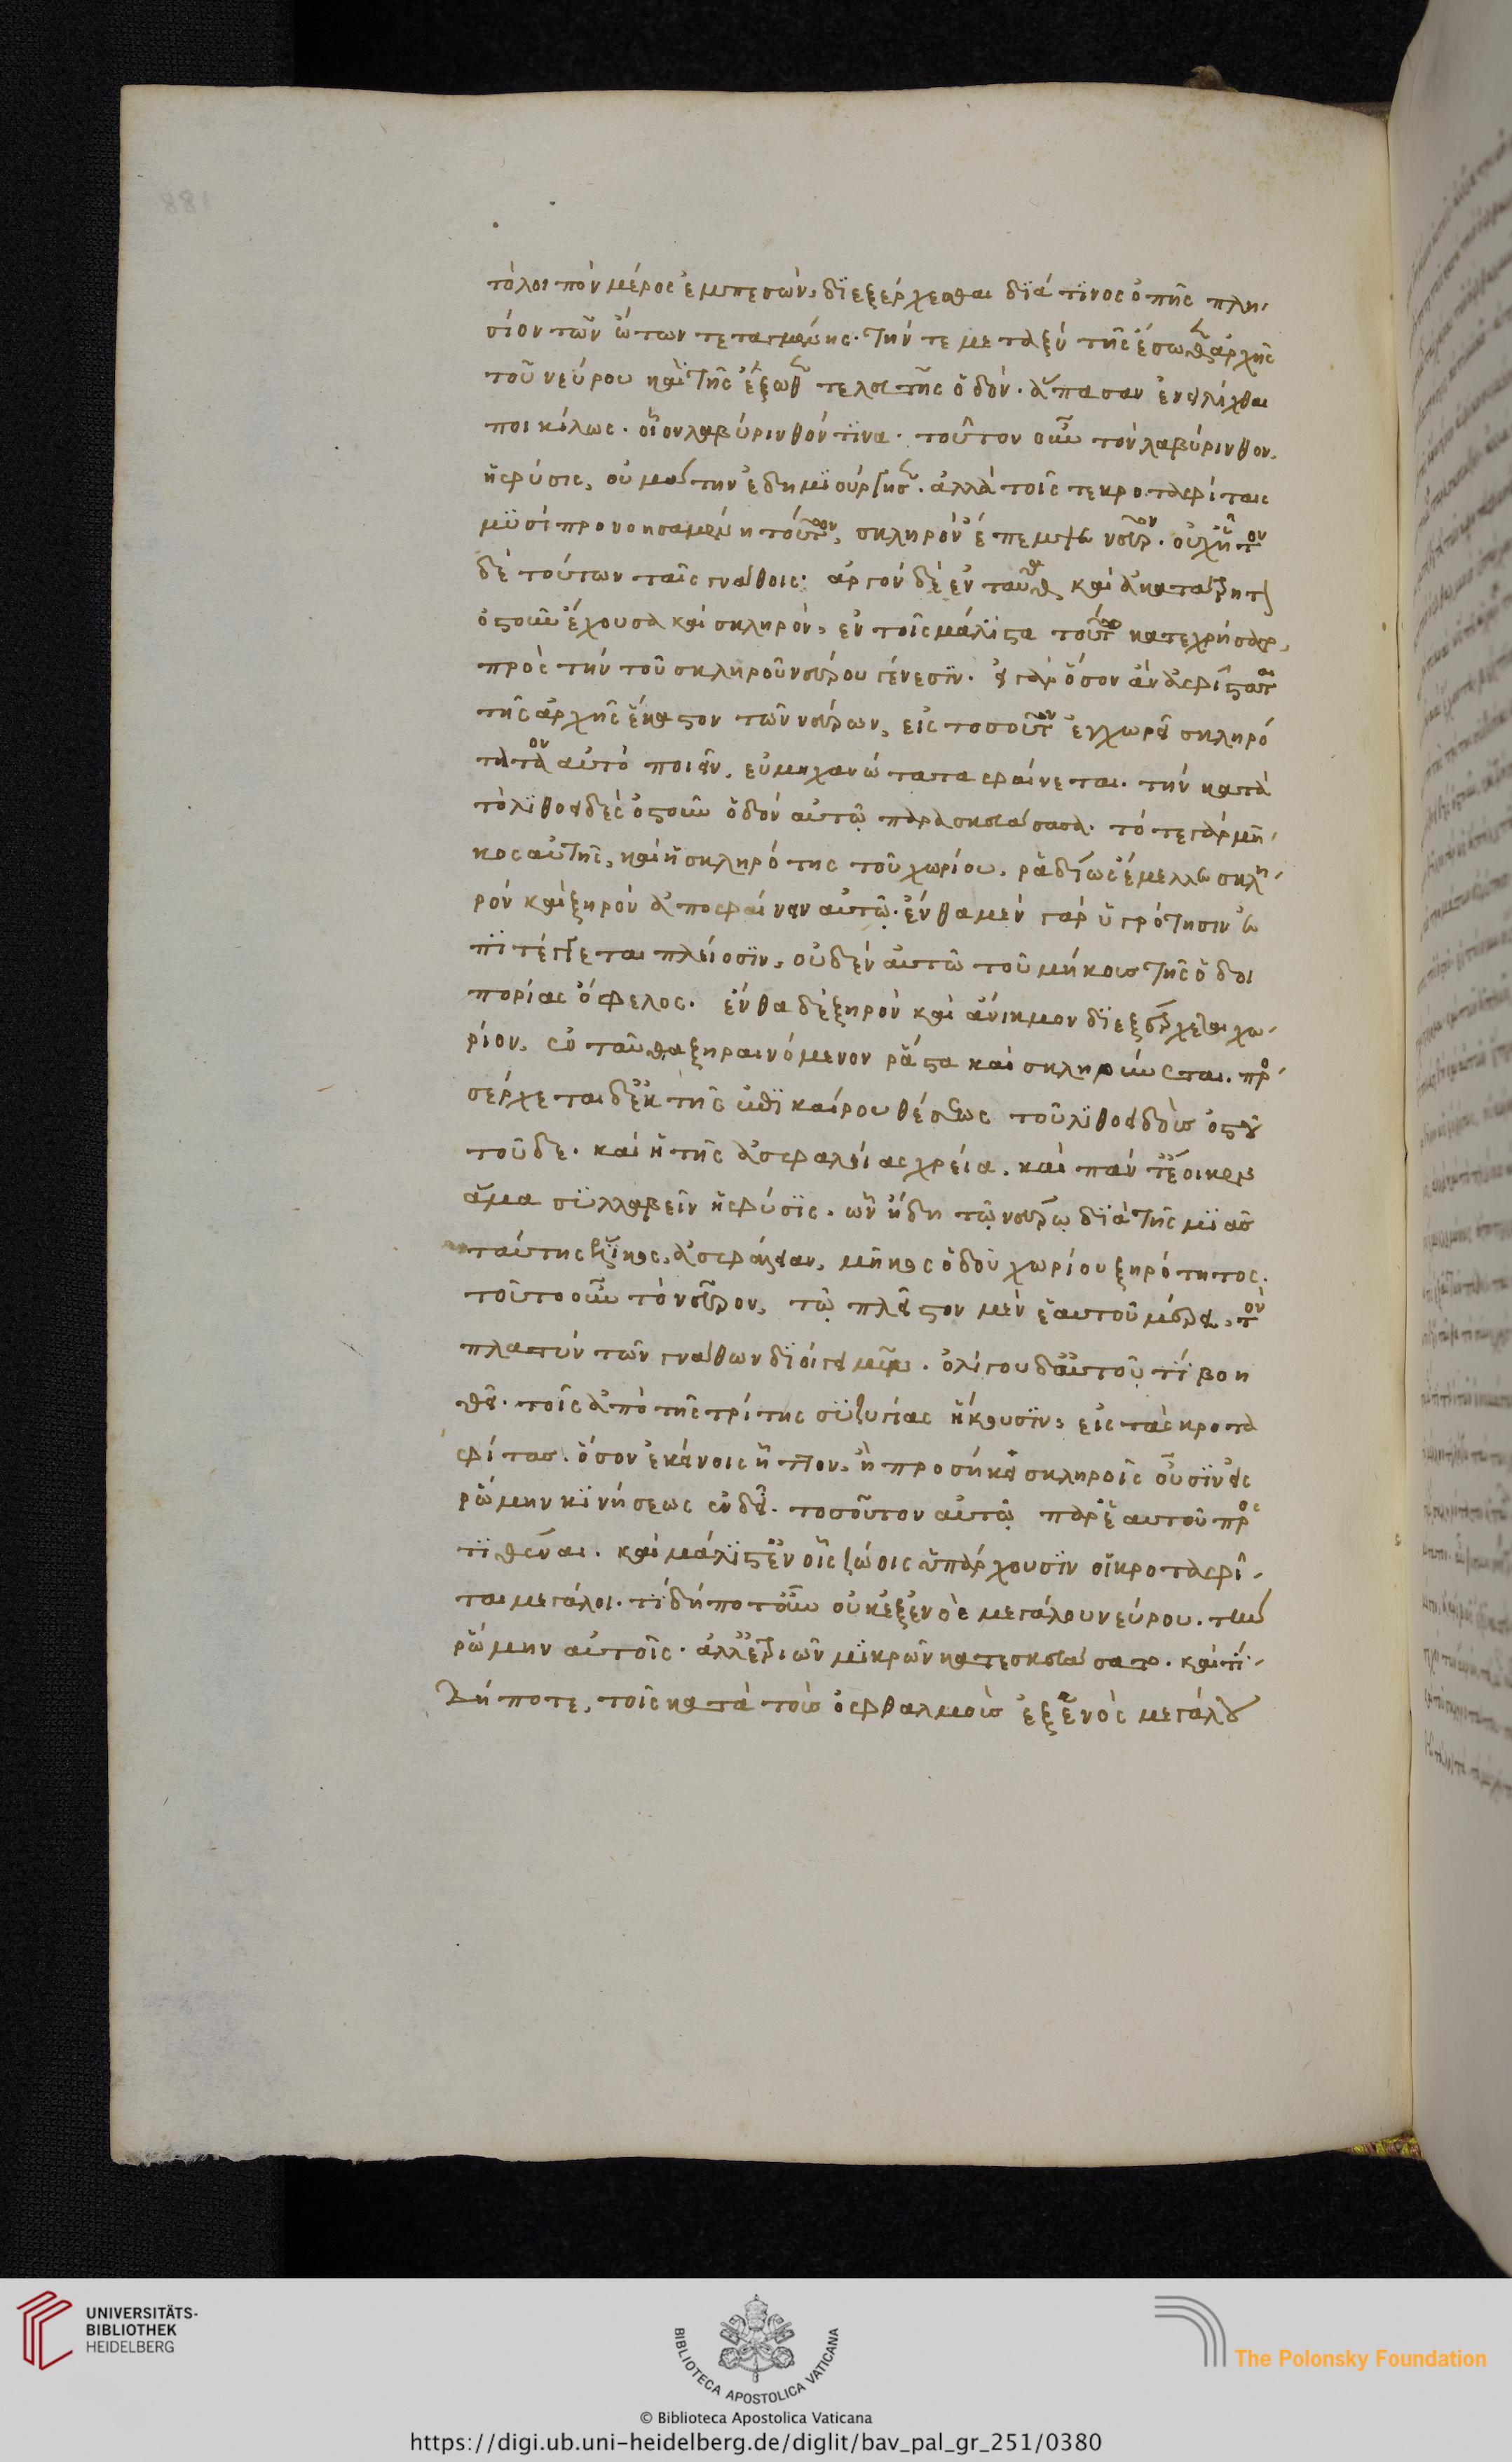 τὸ λοιπὸν μέρος ἐμπεσὼν, διεξέρχεσθαι διά τινος ὀπῆς πλη-
σίον τῶν ὤτων τεταγμένης. τήν τε μεταξὺ τῆς ἔσωθεν ἀρχῆς
τοῦ νεύρου καὶ τῆς ἔξωθεν τελευτῆς ὁδὸν. ἅπασαν ἐνειλίχθαι
ποικίλως. οἷον λαβύρινθόν τινα. τοῦτον οὖν τὸν λαβύρινθον,
ἡ φύσις, οὐ μάτην ἐδημιούργησεν. ἀλλὰ τοῖς τε κροταφίταις
μυσὶ προνοησαμένη τούτων, σκληρὸν ἔπεμψε νεῦρον. οὐχ ἧττον
δὲ τούτων ταῖς γνάθοις. ἀργὸν δὲ ἐνταῦθα καὶ ἀκατάτρητον
ὀστοῦν ἔχουσα καὶ σκληρὸν, ἐν τοῖς μάλιστα τούτῳ κατεχρήσατο,
πρὸς τὴν τοῦ σκληροῦ νεύρου γένεσιν. εἰ γὰρ ὅσον ἂν ἀφίστατο
τῆς ἀρχῆς ἕκαστον τῶν νεύρων, εἰς τοσοῦτον ἐγχωρεῖ σκληρό
τατον αὐτὸ ποιεῖν, εὐμηχανώτατα φαίνεται. τὴν κατὰ
τὸ λιθοειδὲς ὀστοῦν ὁδὸν αὐτῷ παρασκευάσασα. τό τε γὰρ μῆ-
κος αὐτῆς, καὶ ἡ σκληρότης τοῦ χωρίου, ῥᾳδίως ἔμελλε σκλη-
ρὸν καὶ ξηρὸν ἀποφαίνειν αὐτῷ. ἔνθα μὲν γὰρ ὑγρότησιν ἐ
πιτέγγεται πλείοσιν, οὐδὲν αὐτῷ τοῦ μήκους τῆς ὁδοι
πορίας ὄφελος. ἔνθα δὲ ξηρὸν καὶ ἄνικμον διεξέρχεται χω-
ρίον, ἐνταῦθα ξηραινόμενον ῥᾷστα καὶ σκληρύνεται. προ-
σέρχεται δ' ἐκ τῆς ἐπικαίρου θέσεως τοῦ λιθοειδοῦς ὀστοῦ
τοῦδε. καὶ ἡ τῆς ἀσφαλείας χρεία. καὶ πάντ' ἔοικεν
ἅμα συλλαβεῖν ἡ φύσις. ὧν ἤδη τῷ νεύρῳ διὰ τῆς μιᾶς
ταύτης ἕλικος, ἀσφάλειαν, μῆκος ὁδοῦ χωρίου ξηρότητος.
τοῦτο οὖν τὸ νεῦρον, τῷ πλεῖστον μὲν ἑαυτοῦ μέρει, τὸν
πλατὺν τῶν γνάθων διοίγει μῦν. ὀλίγου δ' αὐτοῦ τι βοη
θεῖ. τοῖς ἀπὸ τῆς τρίτης συζυγίας ἥκουσιν, εἰς τοὺς κροτα
φίτας. ὅσον ἐκείνοις ἧττον, ἢ προσήκει σκληροῖς οὖσιν εἰς
ῥώμην κινήσεως ἐνδεῖ. τοσοῦτον αὐτῷ παρ' ἑαυτοῦ προσ
τιθέναι. καὶ μάλιστ' ἐν οἷς ζώοις ὑπάρχουσιν οἱ κροταφῖ-
ται μεγάλοι. τί δήποτ' οὖν οὐκ ἐξ ἑνὸς μεγάλου νεύρου. τὴν
ῥώμην αὐτοῖς. ἀλλ' ἐκ τριῶν μικρῶν κατεσκευάσατο. καὶ τί-
δήποτε, τοῖς κατὰ τοὺς ὀφθαλμοὺς ἐξ ἑνὸς μεγάλου
UNIVERSITÄTS-
BIBLIOTHEK
HEIDELBERG
BIBLIOTECA APOSTOLICA VATICANA
The Polonsky Foundation
© Biblioteca Apostolica Vaticana
https://digi.ub.uni-heidelberg.de/diglit/bav_pal_gr_251/0380